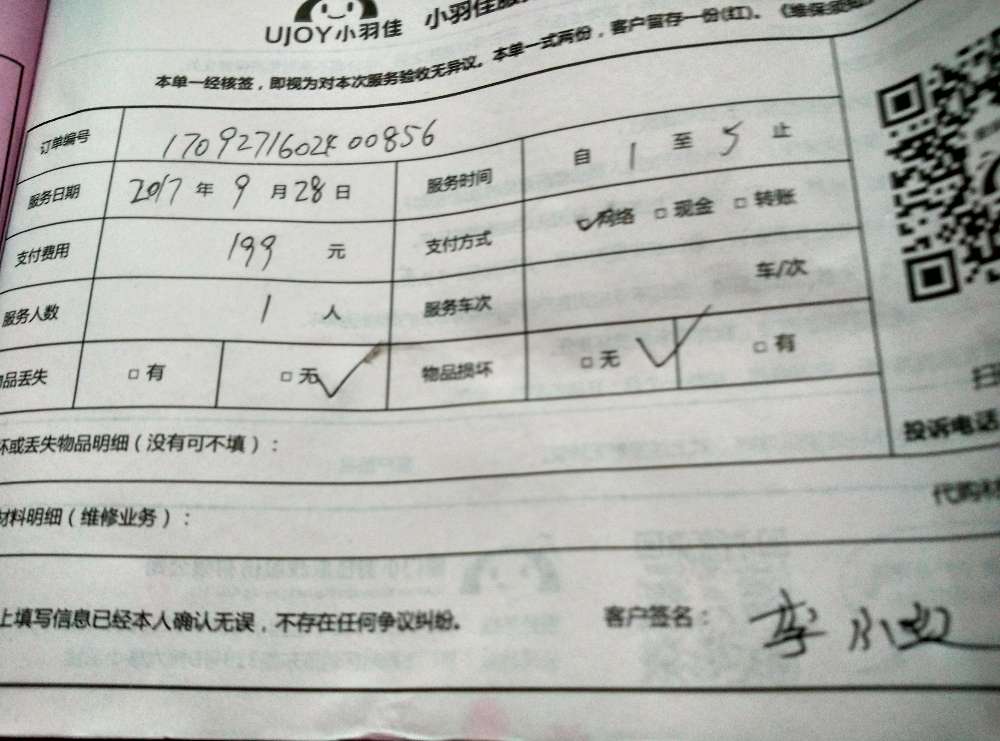 UJOY小羽佳 小羽佳服
本单一经核签，即视为对本次服务验收无异议。本单一式两份，客户留存一份(红)。《维保须知
订单编号 170927160240 0856
服务日期 2017 年 9 月 28 日 服务时间 自 1 至 5 止
支付费用 199 元 支付方式 ✓网络 □ 现金 □ 转账
服务人数 1 人 服务车次 车/次
品丢失 □ 有 □ 无 ✓ 物品损坏 □ 无 ✓ □ 有
坏或丢失物品明细（没有可不填）：
投诉电话
材料明细（维修业务）：
代购
上填写信息已经本人确认无误，不存在任何争议纠纷。 客户签名：